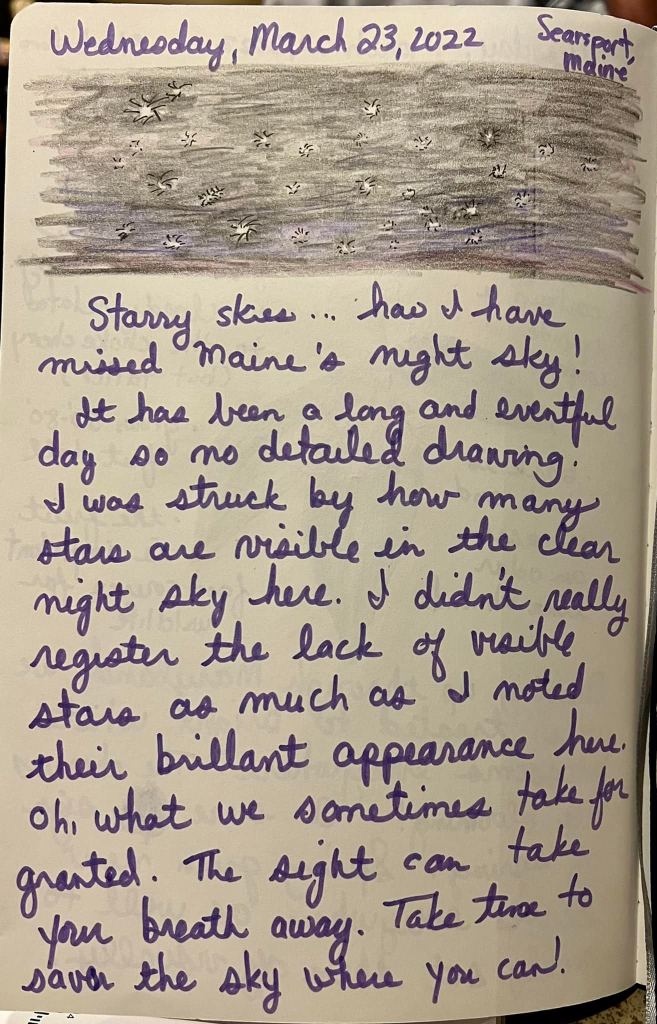 Wednesday, March 23, 2022
Searsport,
Maine
Starry skies... how I have
missed Maine's night sky!
It has been a long and eventful
day so no detailed drawing.
I was struck by how many
stars are visible in the clear
night sky here. I didn't really
register the lack of visible
stars as much as I noted
their brillant appearance here.
Oh, what we sometimes take for
granted. The sight can take
your breath away. Take time to
savor the sky where you can!